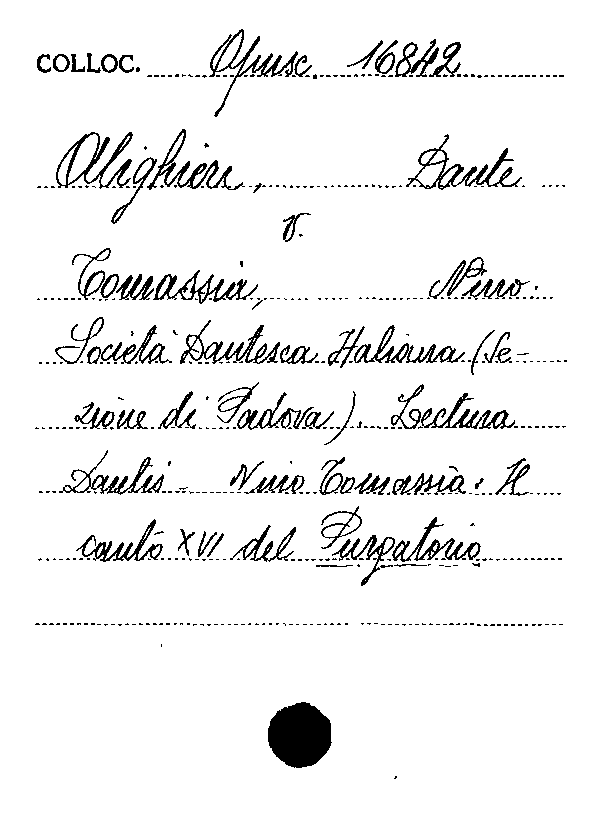 COLLOC. Opusc. 16842
Alighieri, Dante
v.
Tomassia, Nino.
Società Dantesca Italiana (Se-
zione di Padova). Lectura
Dantis - Nino Tomassia. Il
canto XVI del Purgatorio